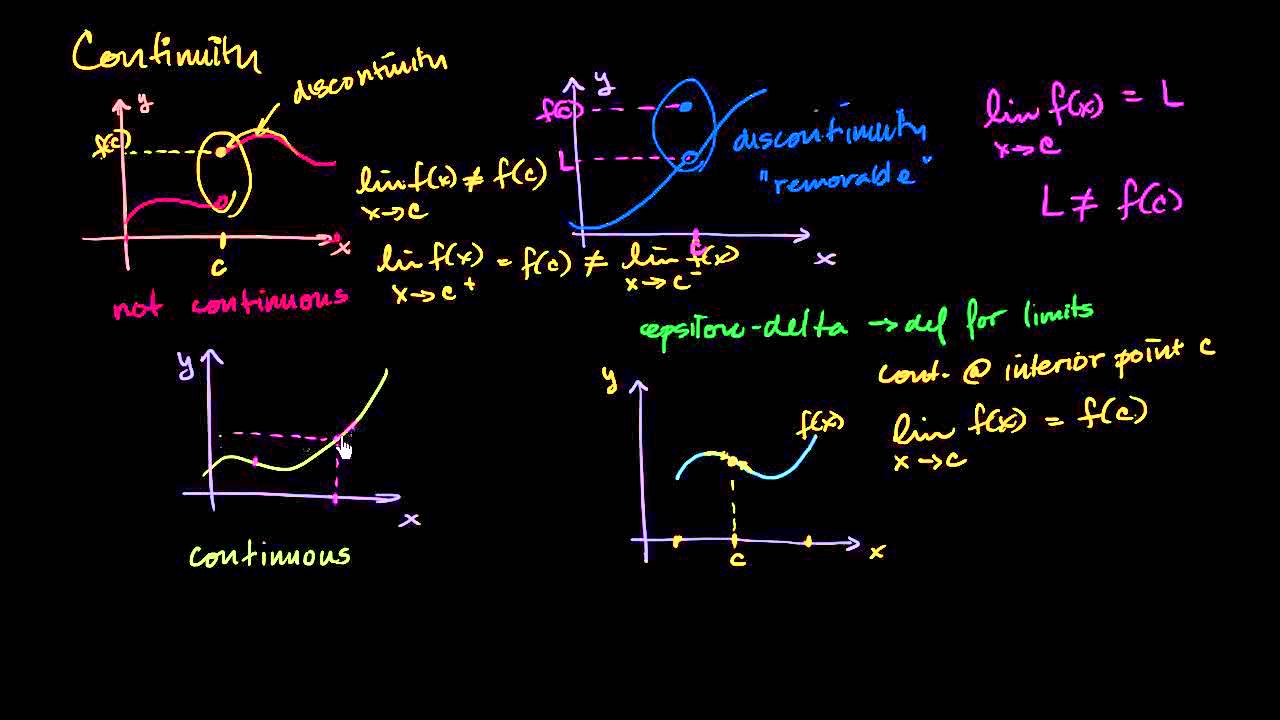 Continuity
discontinuity
y
f(c)
lim f(x) ≠ f(c)
x→c
x
c
not continuous
lim f(x) = f(c) ≠ lim f(x)
x→c⁺ x→c⁻
y
f(c)
L
c
x
discontinuity
"removable"
lim f(x) = L
x→c
L ≠ f(c)
epsilon-delta → def for limits
cont. @ interior point c
lim f(x) = f(c)
x→c
y
x
continuous
y
f(x)
c
x